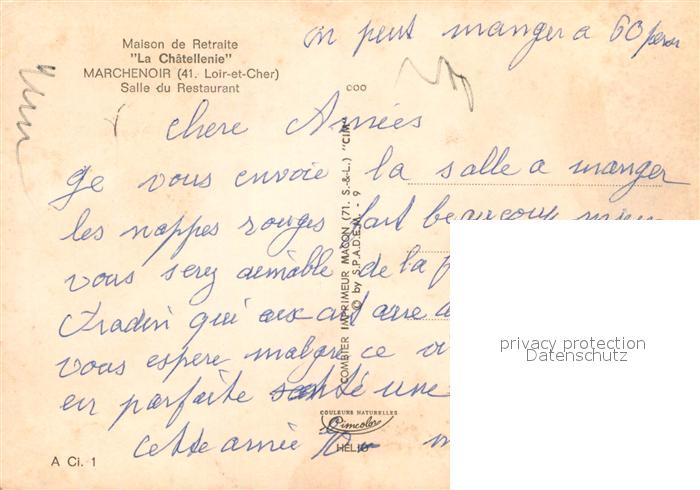 on peut manger a 60 perso
Maison de Retraite
"La Châtellenie"
MARCHENOIR (41. Loir-et-Cher)
Salle du Restaurant
chere Amies
Je vous envoie la salle a manger
les nappes rouges fait beaucoup mieux
vous serez aimable de la
Fradin qui aux
vous espere malgre ce
en parfaite santé une
cette année
COMBIER IMPRIMEUR MACON (71. S.-&-L.) "CIM"
© by S.P.A.D.E.M. - 9
COULEURS NATURELLES
Cimcolor
HÉLIO
A Ci. 1
privacy protection
Datenschutz